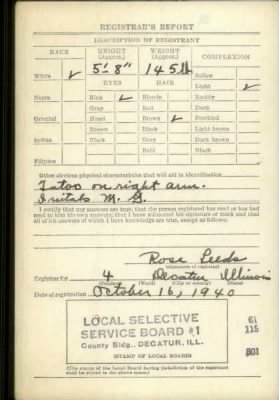 REGISTRAR'S REPORT
DESCRIPTION OF REGISTRANT
RACE HEIGHT (Approx.) WEIGHT (Approx.) COMPLEXION
White ✓ 5' 8" 145 lb Sallow
Light ✓
EYES HAIR
Negro Blue ✓ Blonde Ruddy
Gray Red Dark
Oriental Hazel Brown ✓ Freckled
Brown Black Light brown
Indian Black Gray Dark brown
Bald Black
Filipino
Other obvious physical characteristics that will aid in identification
Tatoo on right arm.
Initals M. S.
I certify that my answers are true; that the person registered has read or has had
read to him his own answers; that I have witnessed his signature or mark and that
all of his answers of which I have knowledge are true, except as follows:
Rose Leeds
(Signature of registrar)
Registrar for 4 Decatur Illinois
(Precinct) (Ward) (City or county) (State)
Date of registration October 16, 1940
LOCAL SELECTIVE
SERVICE BOARD #1
County Bldg., DECATUR, ILL.
61
115
001
STAMP OF LOCAL BOARD
(The stamp of the Local Board having jurisdiction of the registrant
shall be placed in the above space.)